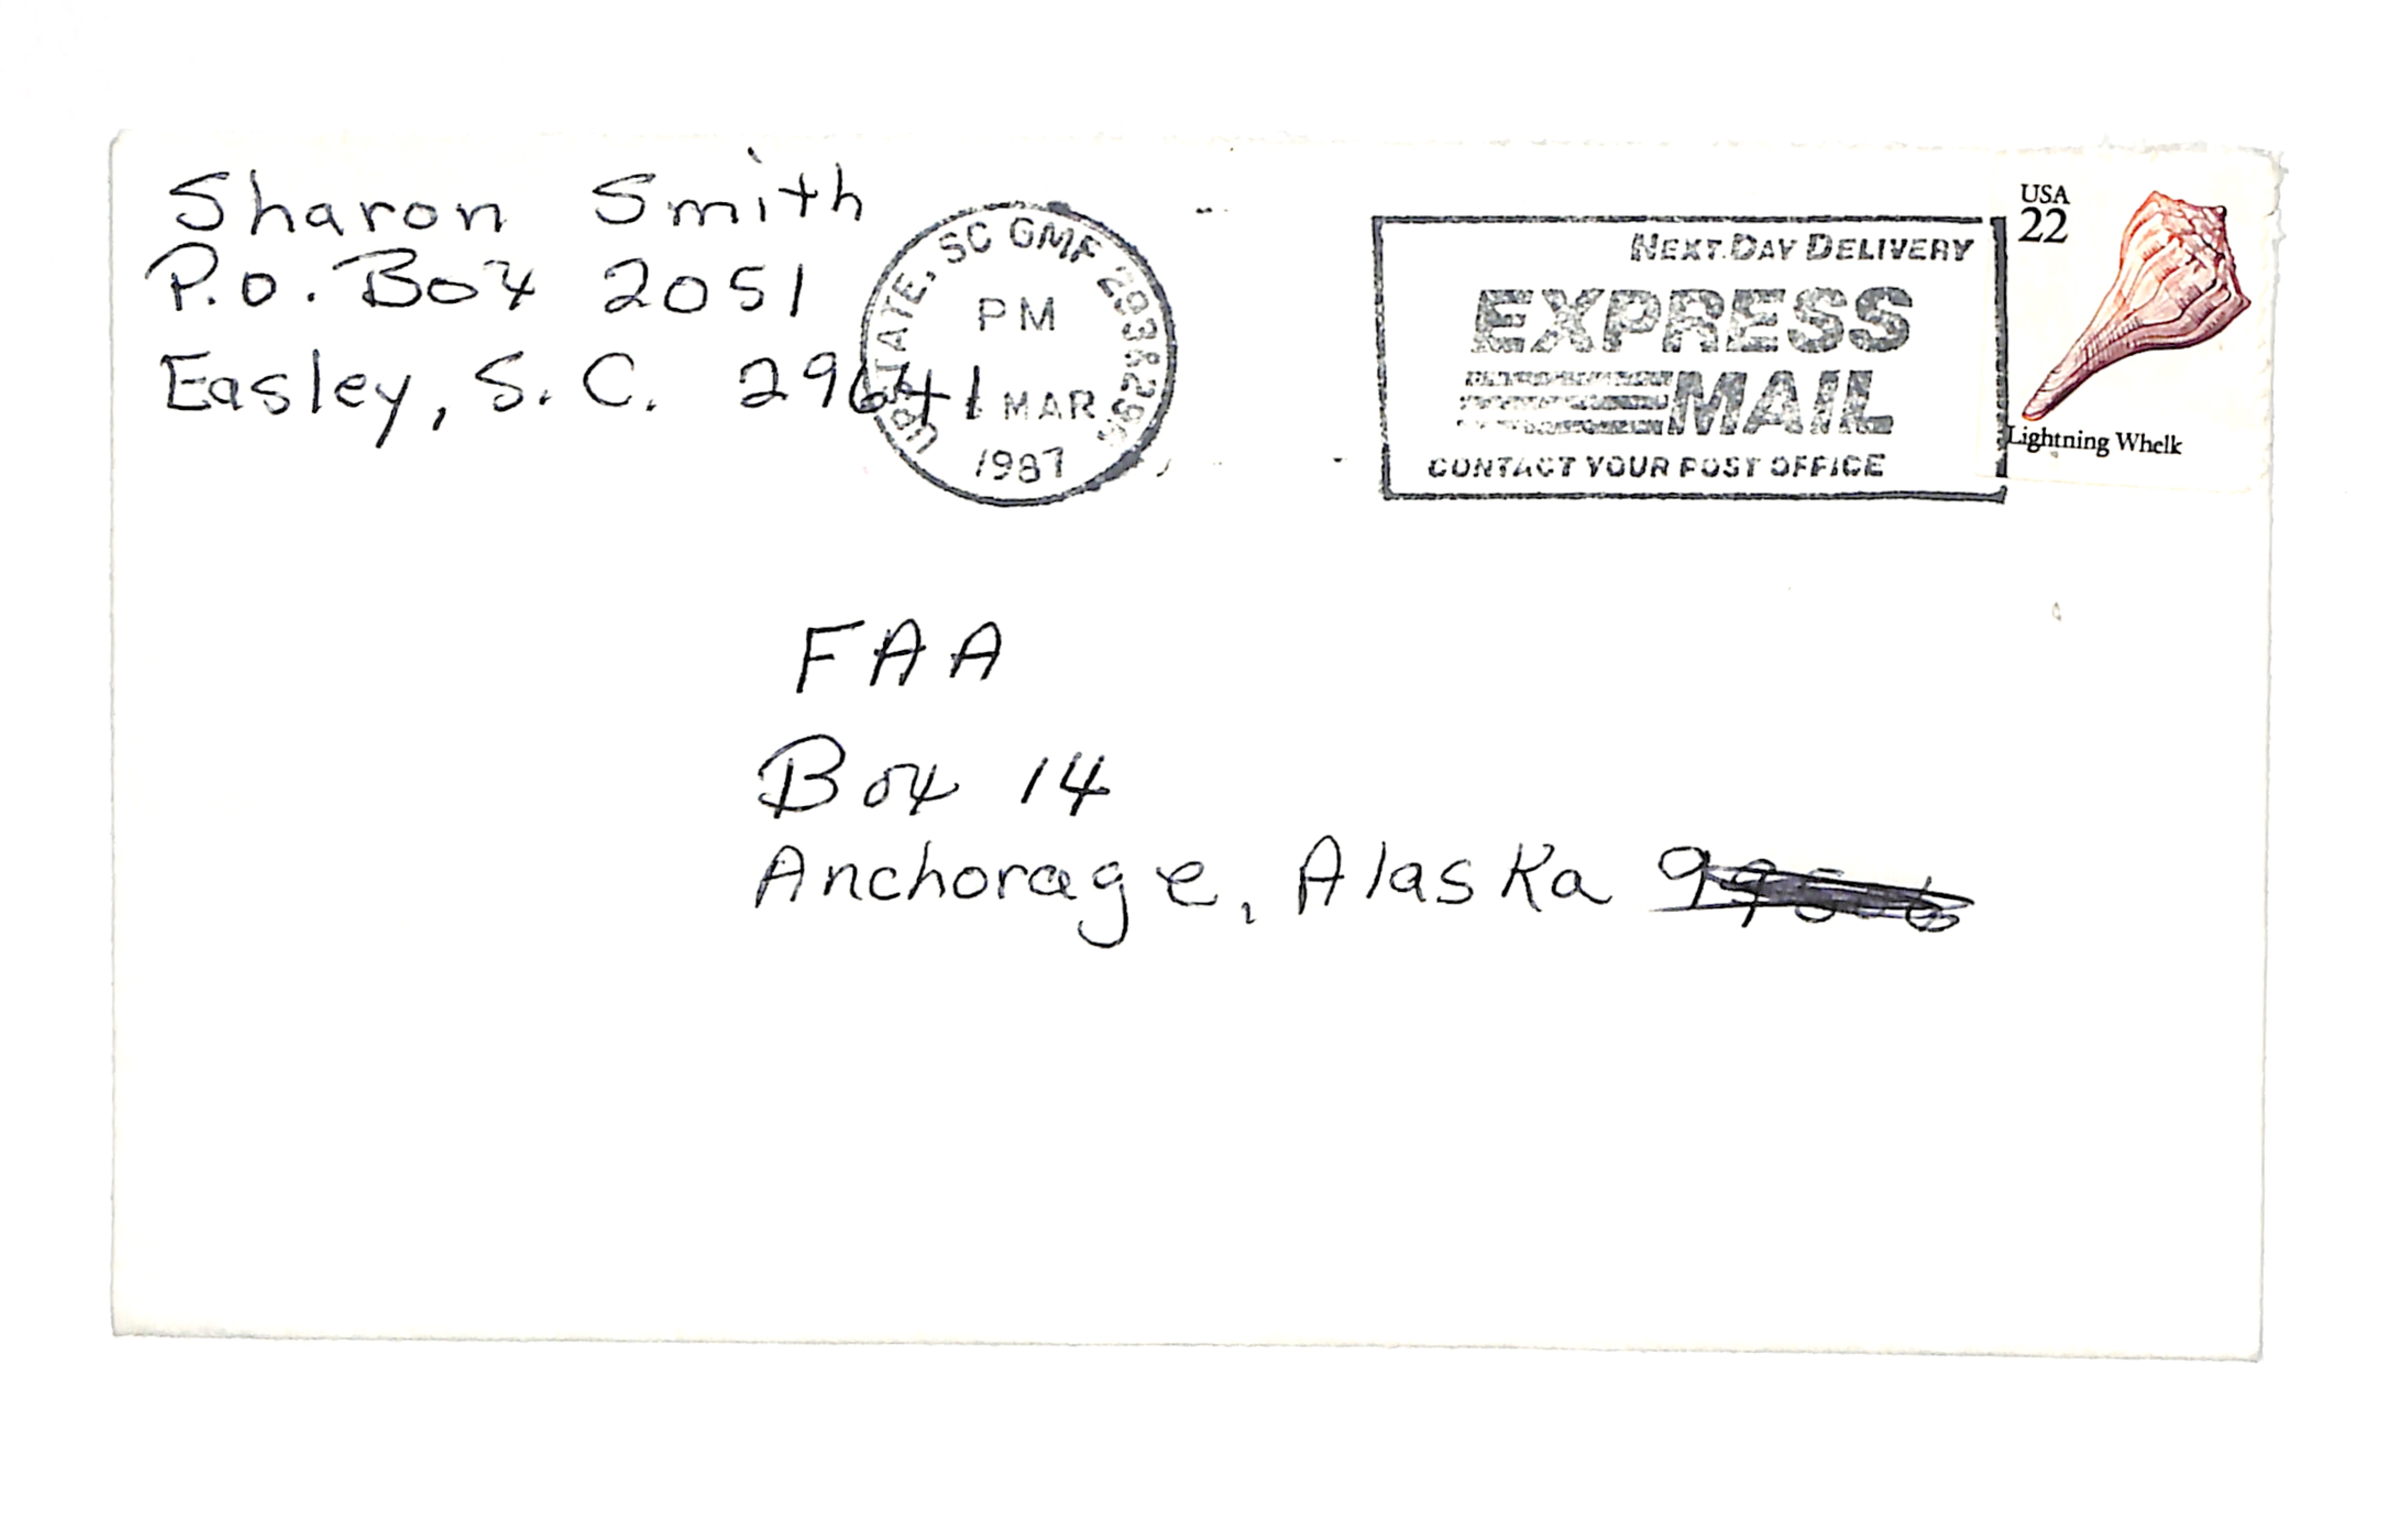 Sharon Smith
P.O. Box 2051
Easley, S.C. 29641
UPSTATE, SC GMF 293&296
PM
1 MAR
1987
NEXT DAY DELIVERY
EXPRESS
MAIL
CONTACT YOUR POST OFFICE
USA
22
Lightning Whelk
FAA
Box 14
Anchorage, Alaska